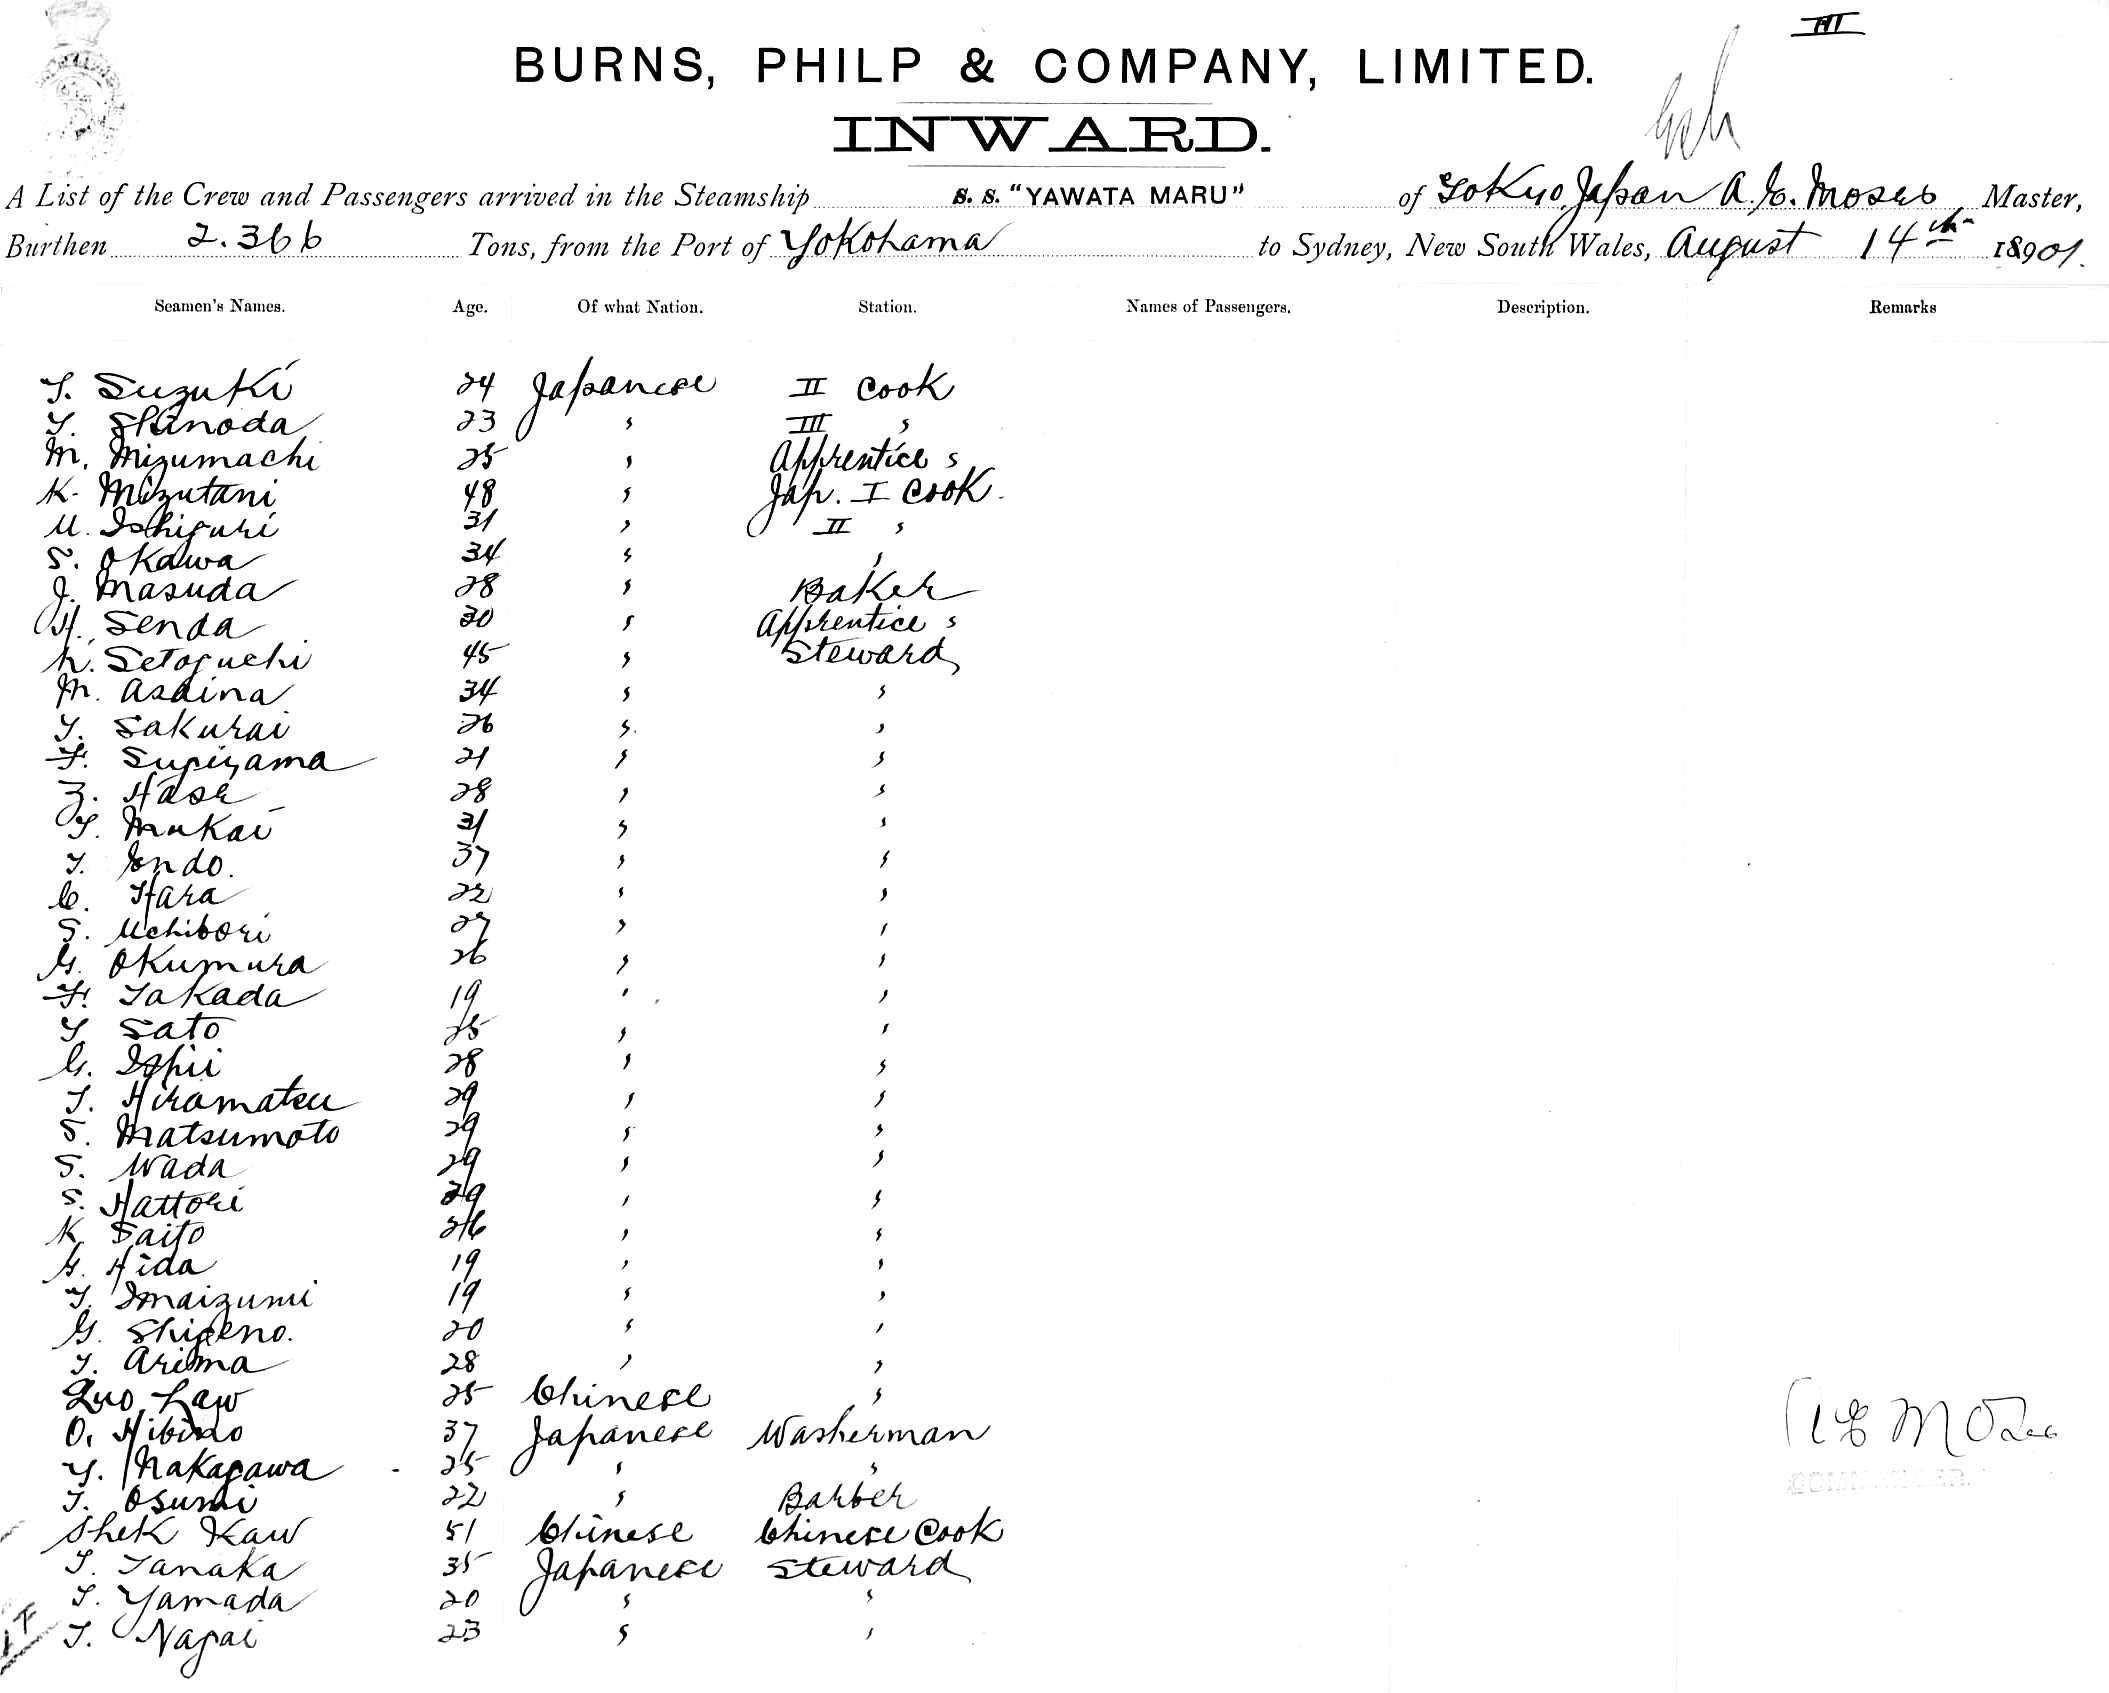 III
BURNS, PHILP & COMPANY, LIMITED.
INWARD.
A List of the Crew and Passengers arrived in the Steamship s. s. "YAWATA MARU" of Tokyo, Japan A. E. Moses Master,
Burthen 2.366 Tons, from the Port of Yokohama to Sydney, New South Wales, August 14th 18901.
Seamen's Names. Age. Of what Nation. Station. Names of Passengers. Description. Remarks
T. Suzuki 24 Japanese II Cook
Y. Shinoda 23 " III "
M. Mizumachi 25 " Apprentice "
K. Mizutani 48 " Jap. I Cook.
U. Ishiguri 31 " II "
S. Okawa 34 " "
J. Masuda 28 " Baker
H. Senda 30 " Apprentice "
K. Setoguchi 45 " Steward
M. Asaina 34 " "
Y. Sakurai 26 " "
F. Sugiyama 21 " "
Z. Hase 28 " "
Y. Mukai 31 " "
T. Endo. 37 " "
C. Hara 22 " "
S. Uchibori 27 " "
G. Okumura 26 " "
F. Takada 19 " "
Y Sato 25 " "
G. Ishii 28 " "
T. Hiramatsu 29 " "
S. Matsumoto 29 " "
S. Wada 29 " "
S. Hattori 29 " "
K Saito 26 " "
G. Hida 19 " "
Y. Imaizumi 19 " "
G. Shigeno. 20 " "
T. Arima 28 " "
Quo Law 25 Chinese "
O. Hibino 37 Japanese Washerman
A E Moses
Y. Nakagawa 25 " "
T. Osumi 22 " Barber
Shek Kaw 51 Chinese Chinese Cook
T. Tanaka 35 Japanese Steward
T. Yamada 20 " "
T. Nagai 23 " "